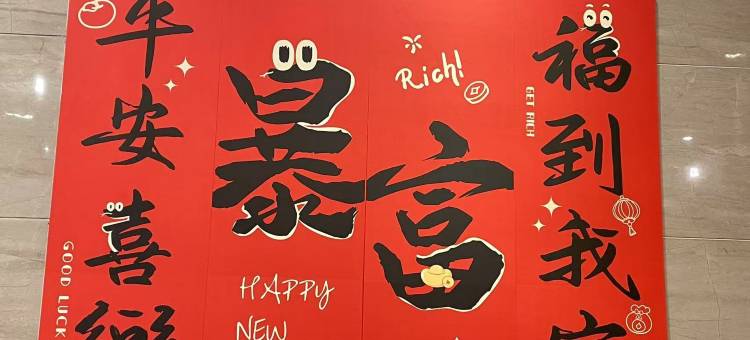 平安喜樂
GOOD LUCK
暴富
Rich!
HAPPY
NEW
GET RICH
福到我家